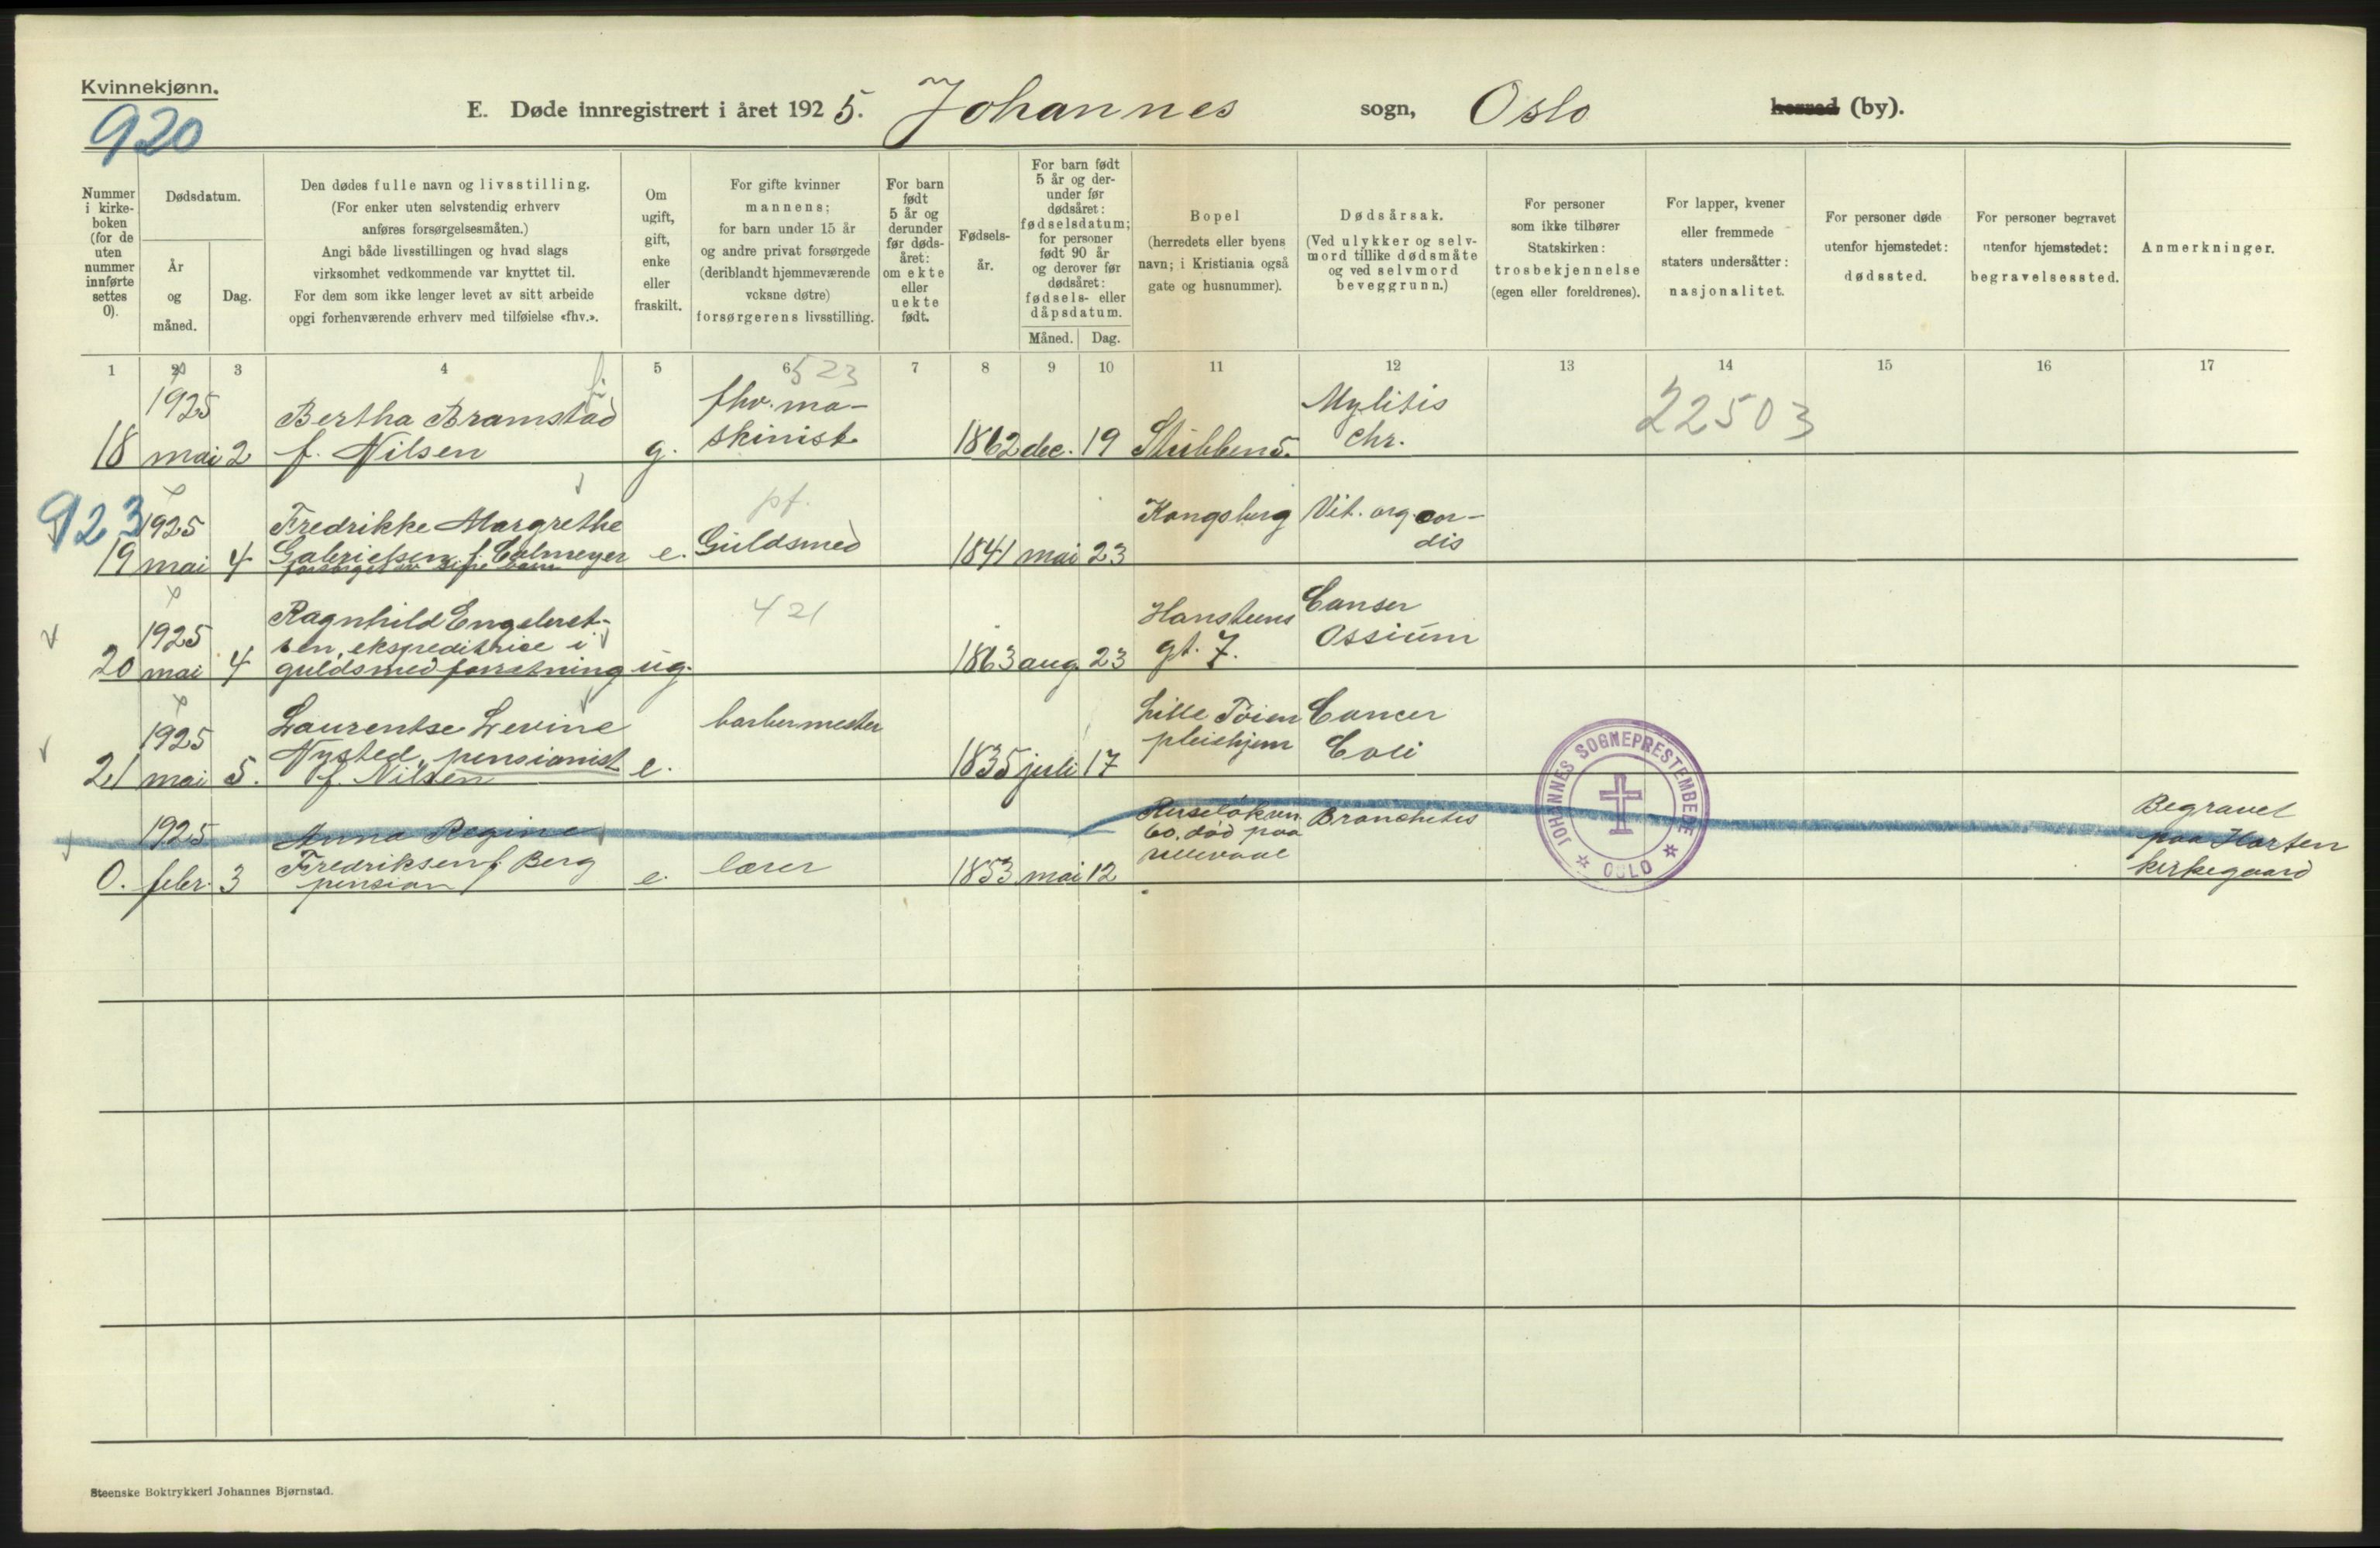 Kvinnekjønn.
920
E. Døde innregistrert i året 1925. Johannes sogn, Oslo herred (by).
Nummer i kirke-boken (for de uten nummer innførte settes 0).
Dødsdatum.
År og måned.
Dag.
Den dødes fulle navn og livsstilling.
(For enker uten selvstendig erhverv
anføres forsørgelsesmåten.)
Angi både livsstillingen og hvad slags
virksomhet vedkommende var knyttet til.
For dem som ikke lenger levet av sitt arbeide
opgi forhenværende erhverv med tilføielse «fhv.».
Om ugift, gift, enke eller fraskilt.
For gifte kvinner
mannens;
for barn under 15 år
og andre privat forsørgede
(deriblandt hjemmeværende
voksne døtre)
forsørgerens livsstilling.
For barn født 5 år og derunder før døds-året: om ekte eller uekte født.
Fødsels-år.
For barn født 5 år og der-under før dødsåret: fødselsdatum; for personer født 90 år og derover før dødsåret: fødsels- eller dåpsdatum.
Måned. Dag.
Bopel
(herredets eller byens
navn; i Kristiania også
gate og husnummer).
Dødsårsak.
(Ved ulykker og selv-
mord tillike dødsmåte
og ved selvmord
beveggrunn.)
For personer
som ikke tilhører
Statskirken:
trosbekjennelse
(egen eller foreldrenes).
For lapper, kvener
eller fremmede
staters undersåtter:
nasjonalitet.
For personer døde
utenfor hjemstedet:
dødssted.
For personer begravet
utenfor hjemstedet:
begravelsessted.
Anmerkninger.
1 2 3 4 5 6 7 8 9 10 11 12 13 14 15 16 17
523
1925 Bertha Bramstad fhv. ma- Mylitis 22503
18 mai 2 f. Nilsen g. skinist 1862 dec. 19 Stubben 5. chr.
923 1925 Fredrikke Margrethe pf. Kongsberg Vit. org. cor-
19 mai 4 Gabrielsen f. Colmeyer e. Guldsmed 1841 mai 23 dis
forsørget av sine barn
1925 Ragnhild Engebret- 421 Hansteens Canser
sen, ekspeditrice i
20 mai 4 guldsmedforretning ug. 1863 aug. 23 gt. 7. Ossium
1925 Laurentse Levine barbermester Lille Tøien Cancer
Nysted, pensionist pleiehjem Coli
21 mai 5. f. Nilsen e. 1835 juli 17
1925 Anna Regine Ruseløkvn. Bronchitis Begravet
60, død paa paa Horten
0. febr. 3 Fredriksen f. Berg e. lærer 1853 mai 12 Ullevaal kirkegaard
pension
JOHANNES SOGNEPRESTEMBEDE
OSLO
Steenske Boktrykkeri Johannes Bjørnstad.